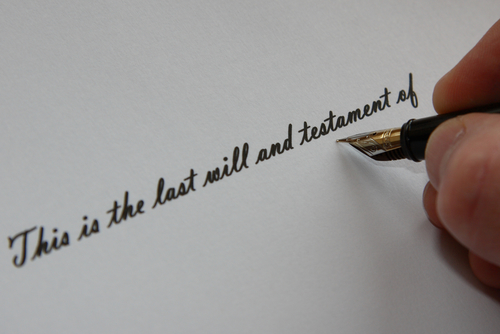 This is the last will and testament of